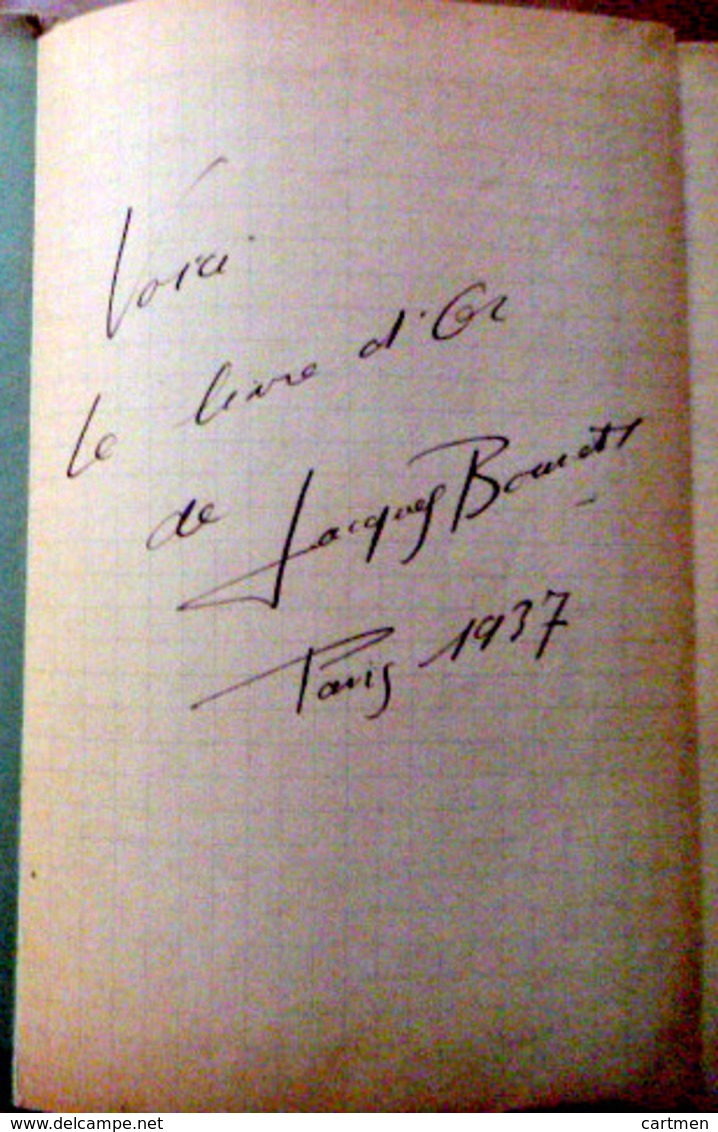 Voici
le livre d'Or
de Jacques
Paris 1937
© www.delcampe.net
cartmen